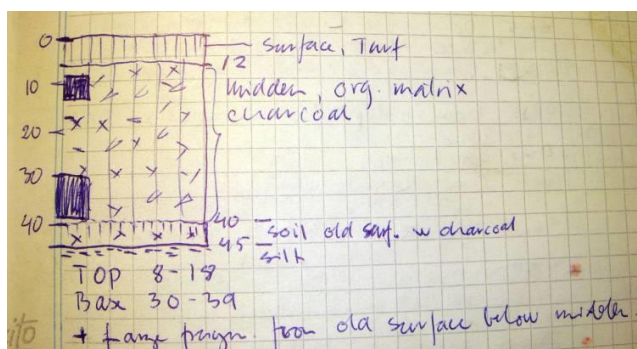 0
surface, Turf
12
10
midden, org. matrix
charcoal
20
30
40
40
soil old surf. w charcoal
45
silt
TOP 8-18
Bax 30-39
+ large from old surface below midden.